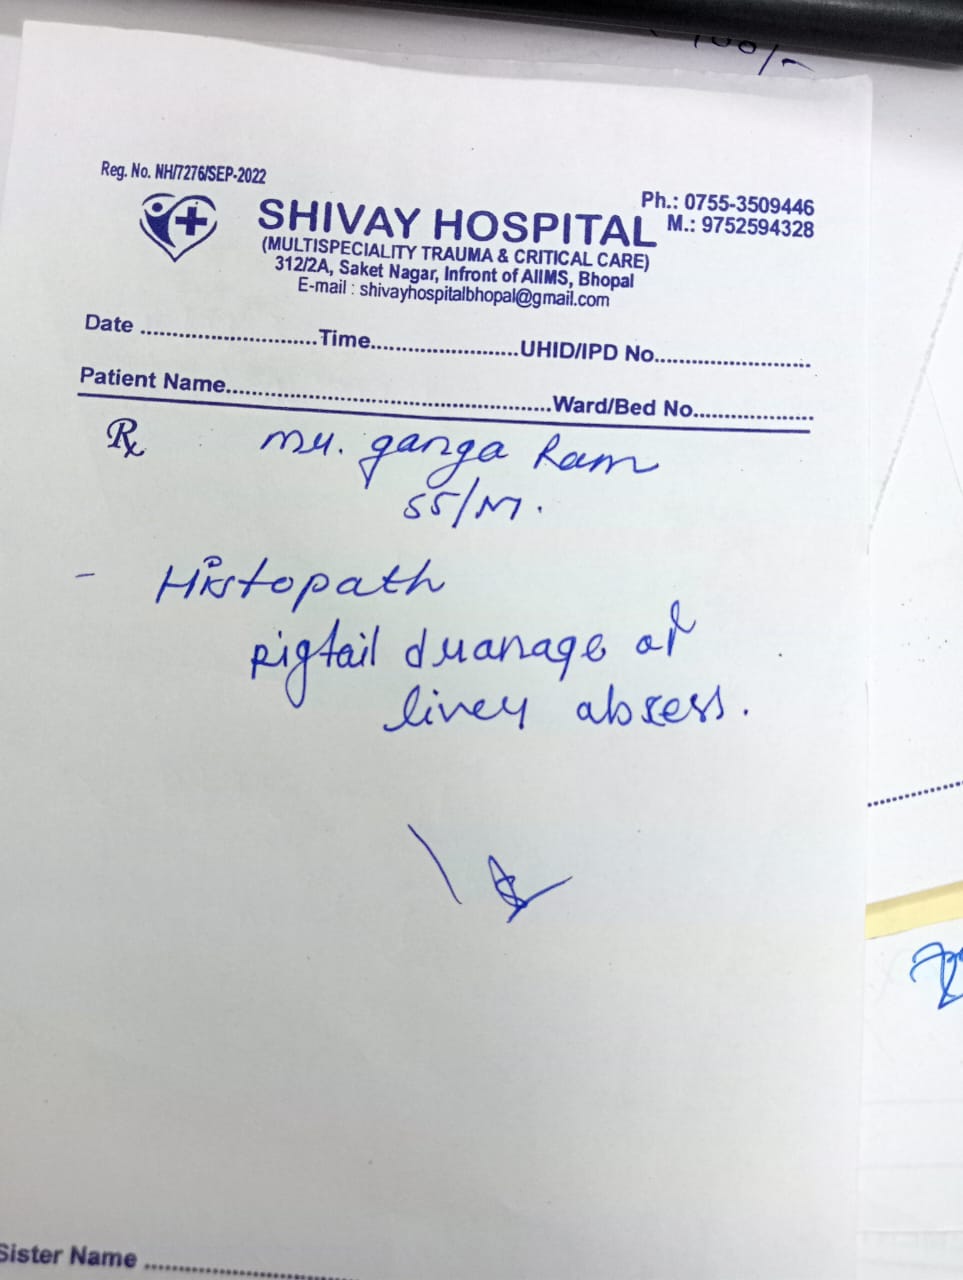 100/-
Reg. No. NH/7276/SEP-2022
Ph.: 0755-3509446
SHIVAY HOSPITAL M.: 9752594328
(MULTISPECIALITY TRAUMA & CRITICAL CARE)
312/2A, Saket Nagar, Infront of AIIMS, Bhopal
E-mail : shivayhospitalbhopal@gmail.com
Date ............................Time........................UHID/IPD No.........................
Patient Name....................................................Ward/Bed No...................
Rx Mr. Ganga Ram
55/M.
- Histopath
pigtail dranage of
liver absess.
Sister Name ..............................